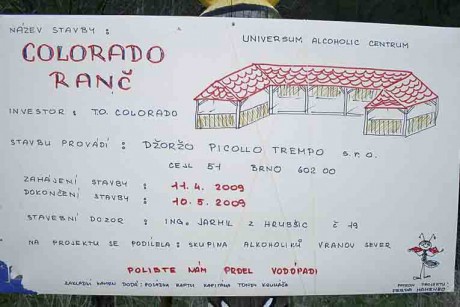 NÁZEV STAVBY :
UNIVERSUM ALCOHOLIC CENTRUM
COLORADO
RANČ
INVESTOR : T.O. COLORADO
STAVBU PROVÁDÍ : DŽORŽO PICOLLO TREMPO s.r.o.
CEJL 51 BRNO 602 00
ZAHÁJENÍ STAVBY : 11.4. 2009
DOKONČENÍ STAVBY : 10.5. 2009
STAVEBNÍ DOZOR : ING. JARMIL Z HRUBŠIC Č 19
NA PROJEKTU SE PODÍLELA : SKUPINA ALKOHOLIKŮ VRANOV SEVER
POLIBTE NÁM PRDEL VODOPÁDI
ZÁKLADNÍ KÁMEN DODÁ : POSÁDKA RAFTU KAPITÁNA TONDY